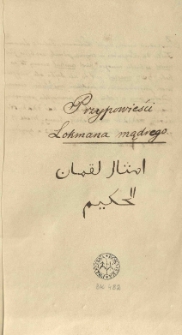 Przypowieści
Lokmana mądrego
امثال لقمان
الحكيم